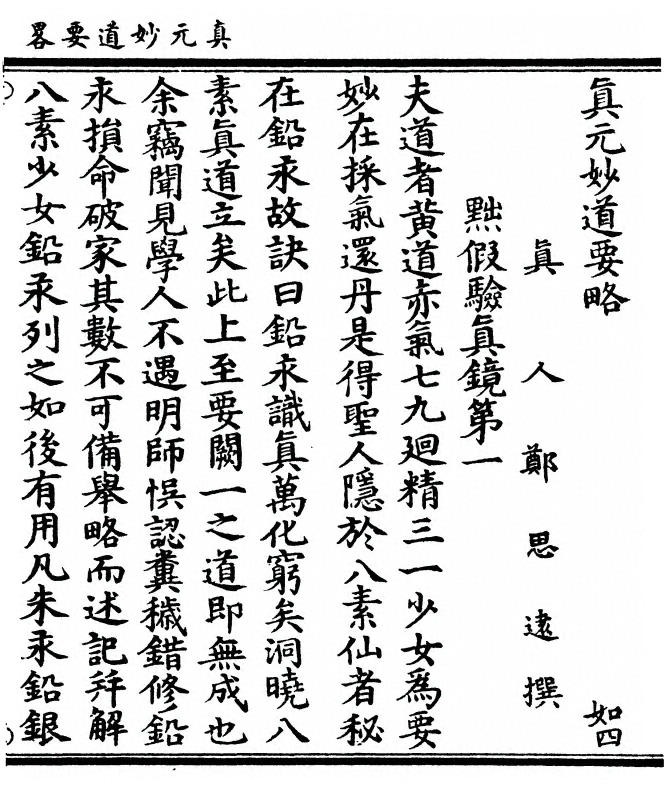 真元妙道要畧
真元妙道要略
真人鄭思遠撰
如四
黜假驗真鏡第一
夫道者黄道赤氣七九廻精三一少女爲要
妙在採氣還丹是得聖人隱於八素仙者秘
在鉛汞故訣曰鉛汞識真萬化窮矣洞曉八
素真道立矣此上至要闕一之道即無成也
余竊聞見學人不遇明師悞認糞穢錯修鉛
汞損命破家其數不可備舉略而述記并解
八素少女鉛汞列之如後有用凡朱汞鉛銀